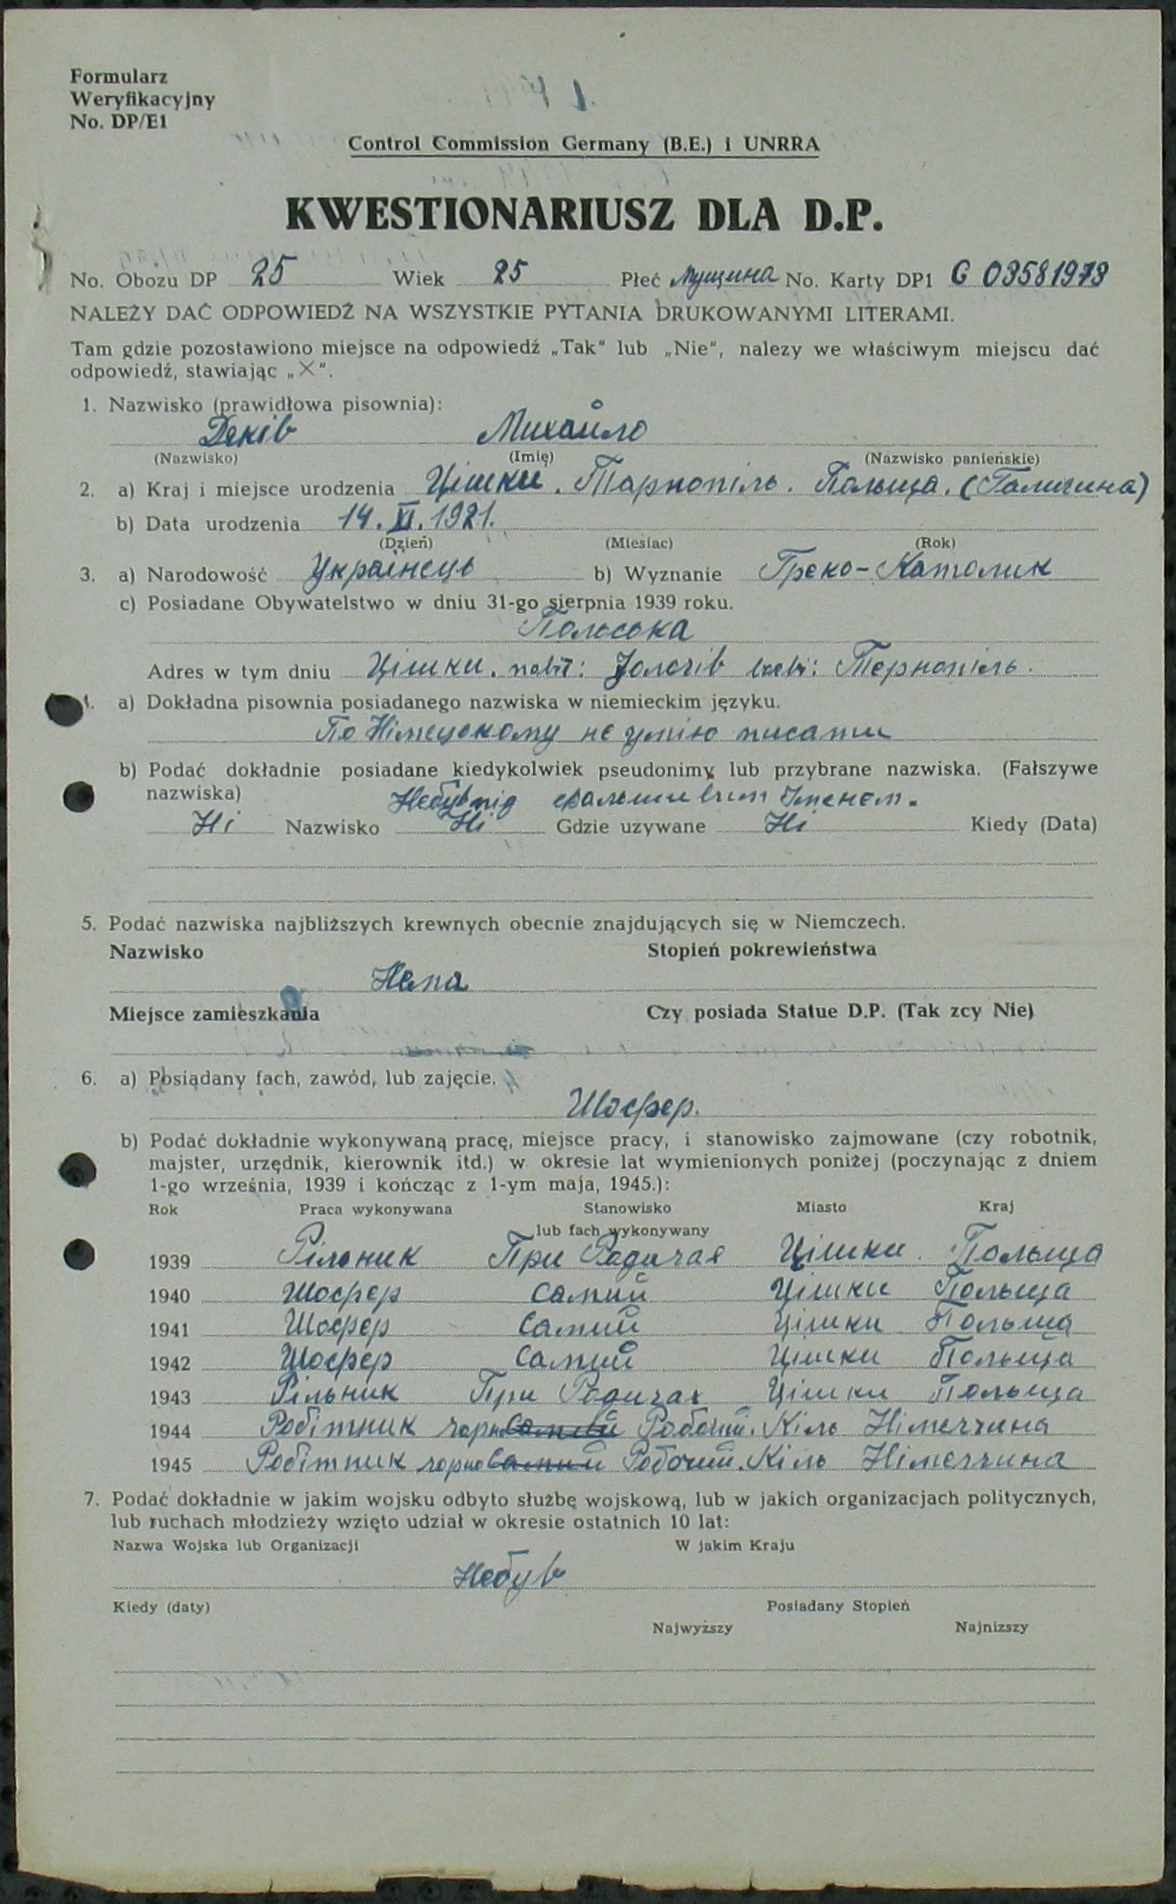 Formularz
Weryfikacyjny
No. DP/E1
Control Commission Germany (B.E.) i UNRRA
KWESTIONARIUSZ DLA D.P.
No. Obozu DP 25 Wiek 25 Płeć Мущина No. Karty DP1 G 03581973
NALEŻY DAĆ ODPOWIEDŹ NA WSZYSTKIE PYTANIA DRUKOWANYMI LITERAMI.
Tam gdzie pozostawiono miejsce na odpowiedź „Tak" lub „Nie", nalezy we właściwym miejscu dać
odpowiedź, stawiając „×".
1. Nazwisko (prawidłowa pisownia):
Деків Михайло
(Nazwisko) (Imię) (Nazwisko panieńskie)
2. a) Kraj i miejsce urodzenia Цішки. Тарнопіль. Польща. (Галичина)
b) Data urodzenia 14. XI. 1921.
(Dzień) (Miesiac) (Rok)
3. a) Narodowość Українець b) Wyznanie Греко-Католик
c) Posiadane Obywatelstwo w dniu 31-go sierpnia 1939 roku.
Польська
Adres w tym dniu Цішки. повіт: Золочів воєв: Тернопіль.
4. a) Dokładna pisownia posiadanego nazwiska w niemieckim języku.
По Німецькому не умію писати
b) Podać dokładnie posiadane kiedykolwiek pseudonimy lub przybrane nazwiska. (Fałszywe
nazwiska) Небув під фальшивим Іменем.
Ні Nazwisko Ні Gdzie uzywane Ні Kiedy (Data)
5. Podać nazwiska najbliższych krewnych obecnie znajdujących się w Niemczech.
Nazwisko Stopień pokrewieństwa
Нема
Miejsce zamieszkania Czy posiada Statue D.P. (Tak zcy Nie)
6. a) Posiądany fach, zawód, lub zajęcie.
Шофер.
b) Podać dokładnie wykonywaną pracę, miejsce pracy, i stanowisko zajmowane (czy robotnik,
majster, urzędnik, kierownik itd.) w okresie lat wymienionych poniżej (poczynając z dniem
1-go września, 1939 i kończąc z 1-ym maja, 1945.):
Rok Praca wykonywana Stanowisko Miasto Kraj
lub fach wykonywany
1939 Рільник При Родичах Цішки. Польща
1940 Шофер самий Цішки Польща
1941 Шофер самий Цішки Польща
1942 Шофер самий Цішки Польща
1943 Рільник При Родичах Цішки Польща
1944 Робітник чорно самий Робочий. Кіль Німеччина
1945 Робітник чорно самий Робочий. Кіль Німеччина
7. Podać dokładnie w jakim wojsku odbyto służbę wojskową, lub w jakich organizacjach politycznych,
lub ruchach młodzieży wzięto udział w okresie ostatnich 10 lat:
Nazwa Wojska lub Organizacji W jakim Kraju
Небув
Kiedy (daty) Posiadany Stopień
Najwyższy Najnizszy